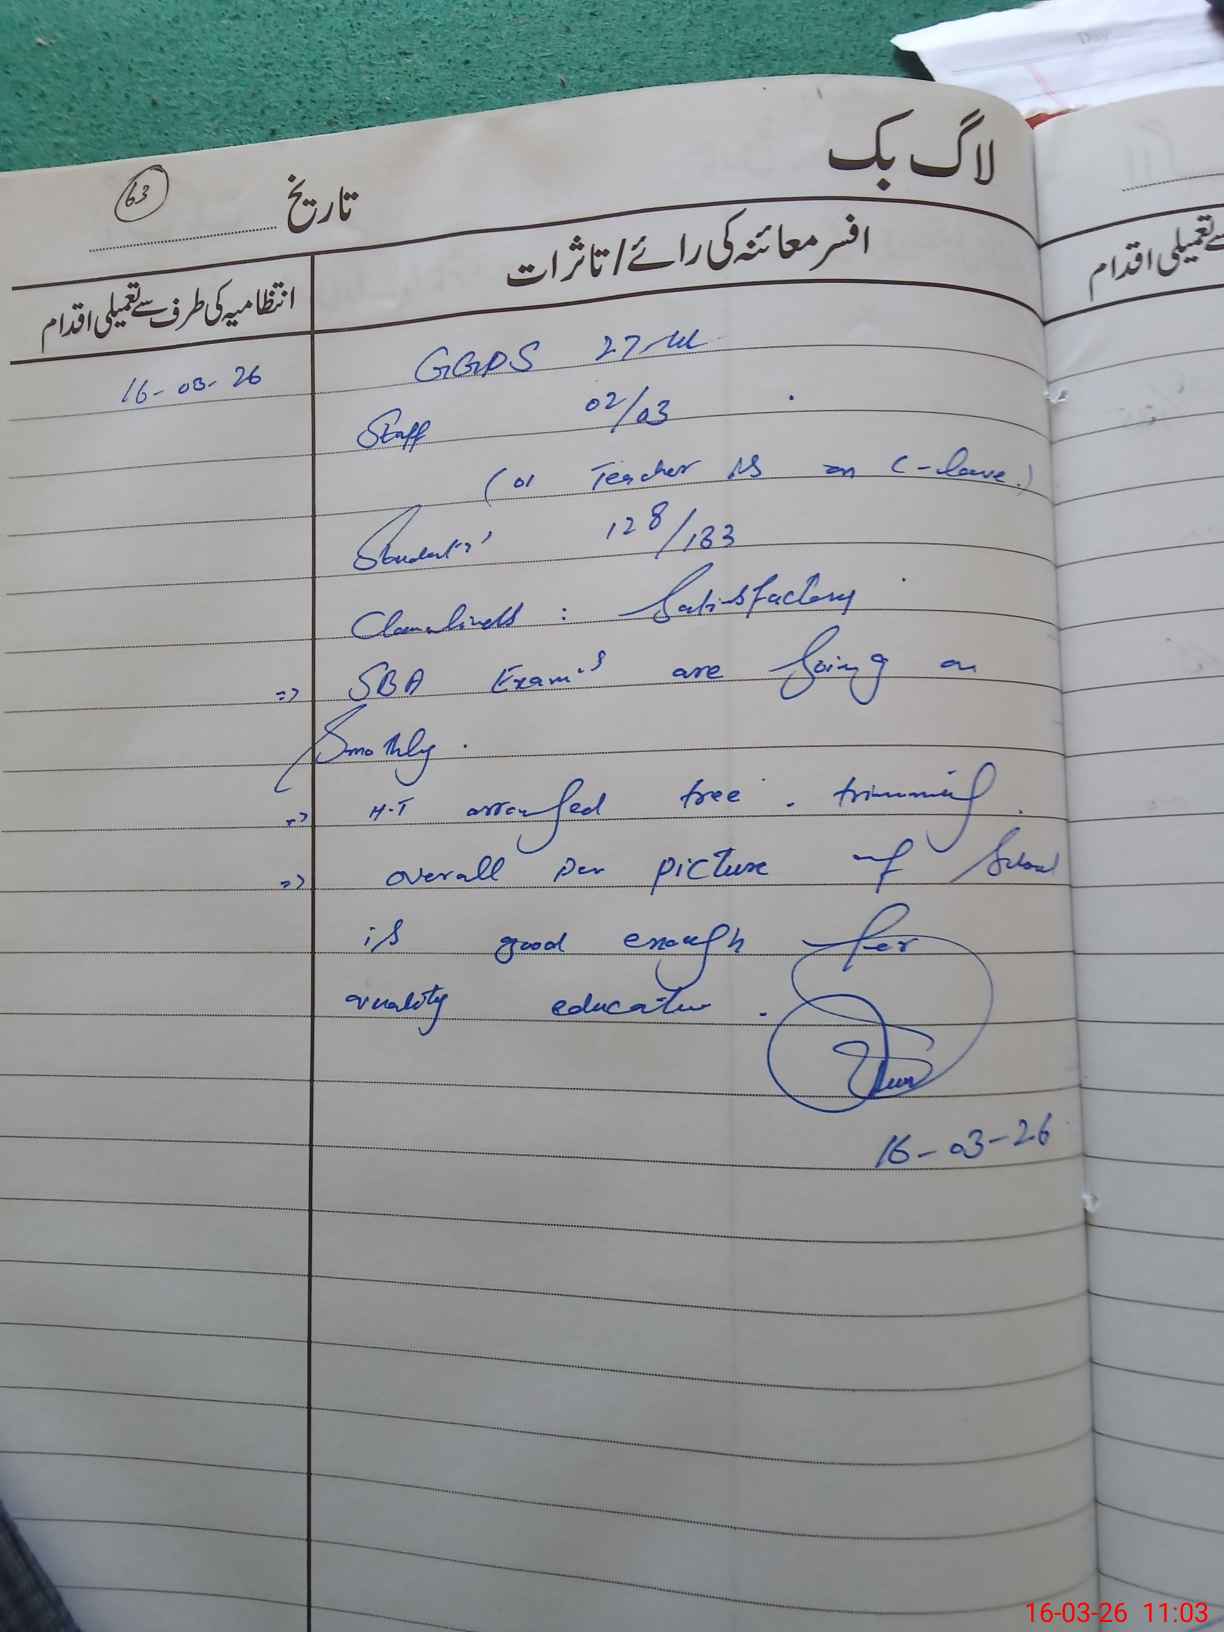 لاگ بک
63
تاریخ
افسر معائنہ کی رائے/تاثرات
انتظامیہ کی طرف سے تعمیلی اقدام
سے تعمیلی اقدام
16-03-26
GGPS 27
Staff 02/03
(01 Teacher is on C-leave.)
Students' 128/133
Cleanliness : Satisfactory
=> SBA Exam's are going on
Smothly.
=> H.T arranged tree . trimming.
=> overall per picture of School
is good enough for
quality education.
16-03-26
16-03-26 11:03